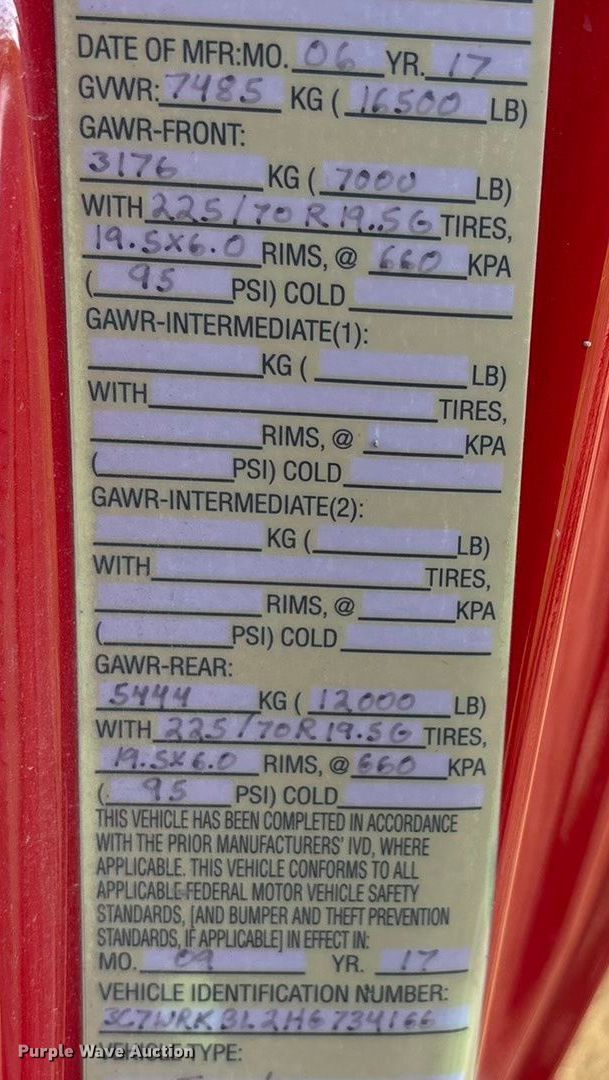 DATE OF MFR:MO. 06 YR. 17
GVWR: 7485 KG ( 16500 LB)
GAWR-FRONT:
3176 KG ( 7000 LB)
WITH 225/70R19.5G TIRES,
19.5x6.0 RIMS, @ 660 KPA
( 95 PSI) COLD
GAWR-INTERMEDIATE(1):
KG ( LB)
WITH TIRES,
RIMS, @ KPA
( PSI) COLD
GAWR-INTERMEDIATE(2):
KG ( LB)
WITH TIRES,
RIMS, @ KPA
( PSI) COLD
GAWR-REAR:
5444 KG ( 12,000 LB)
WITH 225/70R19.5G TIRES,
19.5x6.0 RIMS, @ 660 KPA
( 95 PSI) COLD
THIS VEHICLE HAS BEEN COMPLETED IN ACCORDANCE
WITH THE PRIOR MANUFACTURERS' IVD, WHERE
APPLICABLE. THIS VEHICLE CONFORMS TO ALL
APPLICABLE FEDERAL MOTOR VEHICLE SAFETY
STANDARDS, [AND BUMPER AND THEFT PREVENTION
STANDARDS, IF APPLICABLE] IN EFFECT IN:
MO. 09 YR. 17
VEHICLE IDENTIFICATION NUMBER:
3C7WRKBL2HG734166
VEHICLE TYPE:
Purple Wave Auction